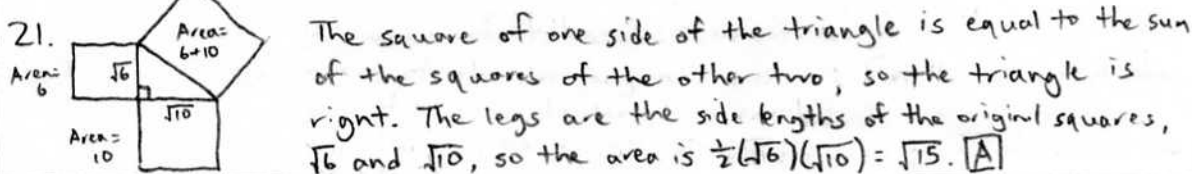 21.
Area=
6+10
Area=
6
√6
√10
Area=
10
The square of one side of the triangle is equal to the sum
of the squares of the other two, so the triangle is
right. The legs are the side lengths of the original squares,
√6 and √10, so the area is ½(√6)(√10) = √15. A